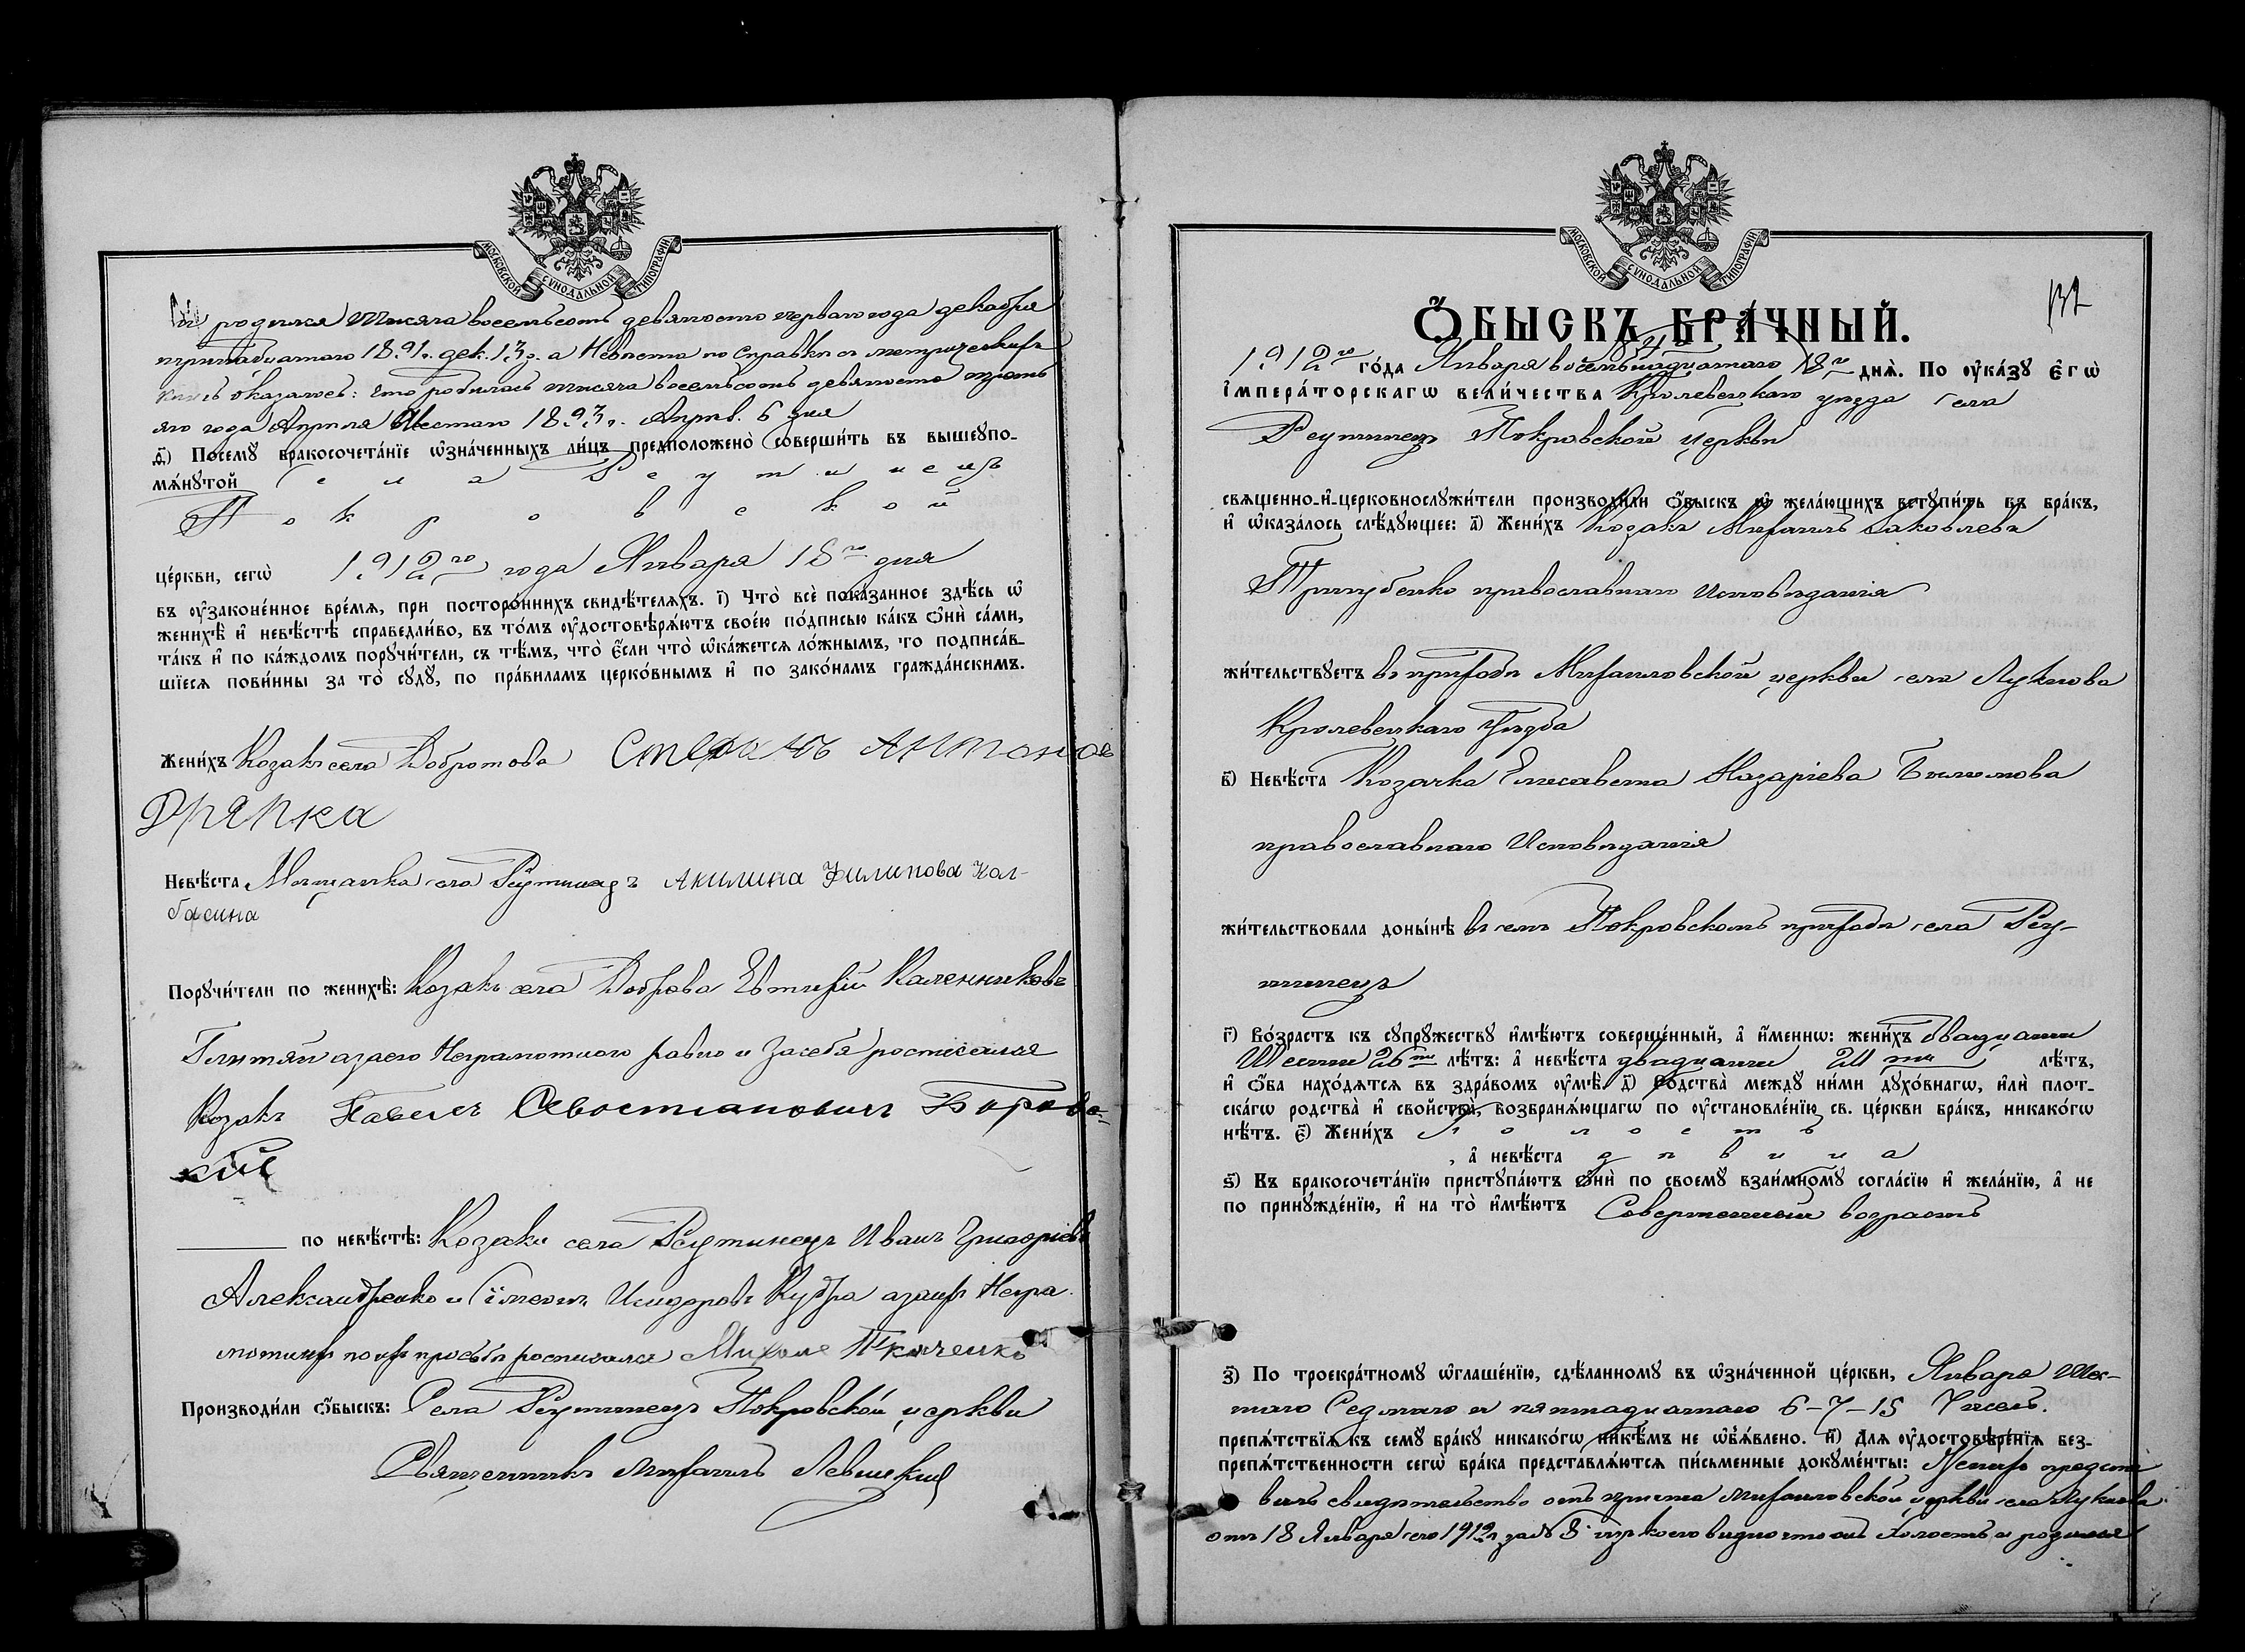 МОСКОВСКОЙ СѴНОДАЛЬНОЙ ТИПОГРАФІИ
родился тысяча восемьсотъ девяносто перваго года декабря
тринадцатаго 1891 г. дек. 13 д. а Невѣста по справкѣ съ метрическихъ
книгъ оказалось: что родилась тысяча восемьсотъ девяносто треть
яго года Апрѣля Шестаго 1893 г. Апрѣл. 6 дня
Посемꙋ̀ бракосочета́нїе ѡ҆зна́ченныхъ ли́цъ предположено̀ соверши́ть въ вышеꙋпо-
мѧ́нꙋтой села Реутинецъ
Покровской
це́ркви, сегѡ̀ 1912 го года Января 18 го дня
въ ᲂу҆законе́нное вре́мѧ, при посторо́ннихъ свидѣ́телѧхъ. і҃) Что̀ всѐ пока́занное здѣ́сь ѡ҆
женихѣ̀ и҆ невѣ́стѣ справедли́во, въ то́мъ ᲂу҆достовѣрѧ́ютъ свое́ю по́дписью ка́къ ѻ҆нѝ са́ми,
та́къ и҆ по ка́ждомъ порꙋчи́тели, съ тѣ́мъ, что̀ є҆́сли что̀ ѡ҆ка́жетсѧ ло́жнымъ, то подписа́в-
шїесѧ пови́нны за то̀ сꙋдꙋ̀, по пра́виламъ церко́внымъ и҆ по зако́намъ гражда́нскимъ.
Жени́хъ Козакъ села Добротова Стефанъ Антонов
Дряпка
Невѣ́ста Мѣщанка села Реутинецъ Акилина Филипова Кол-
басина
Порꙋчи́тели по женихѣ̀: Козакъ села Евтихій Калениковъ
а за его Неграмотного равно и За себя росписался
Козакъ Павелъ Севостіановичъ Боровс-
кій
по невѣ́стѣ: Козаки села Реутинецъ Иванъ Григоріевъ
Александренко и Сімеонъ Исидоровъ Кудра а за ихъ Негра
мотныхъ по ихъ просьбѣ росписался Ткаченко
Производи́ли ѻ҆́быскъ: Села Реутинецъ Покровской церкви
Священникъ Михаилъ Левицкій
МОСКОВСКОЙ СѴНОДАЛЬНОЙ ТИПОГРАФІИ
132
Ѻ҆́БЫСКЪ БРА́ЧНЫЙ.
1912 го го́да Января восемьнадцатаго 18 го днѧ̀. По ᲂу҆ка́зꙋ є҆гѡ̀
і҆мпера́торскагѡ вели́чества Кролевецкаго уѣзда села
Реутинецъ Покровской церкви
свѧщенно-и҆-церковнослꙋжи́тели производи́ли ѻ҆́быскъ ѡ҆ жела́ющихъ встꙋпи́ть въ бра́къ,
и҆ ѡ҆каза́лось слѣ́дꙋющее: а҃) Жени́хъ Козакъ Михаилъ Іаковлевъ
Тригубенко православнаго исповѣданія
жи́тельствꙋетъ въ приходѣ Михаиловской церкви села Лукнова
Кролевецкаго уѣзда
в҃) Невѣ́ста Козачка Елисавета Назаріева
православнаго Исповѣданія
жи́тельствовала доны́нѣ въ семъ Покровскомъ приходѣ села Реу-
тинецъ
г҃) Во́зрастъ къ сꙋпрꙋ́жествꙋ и҆мѣ́ютъ соверше́нный, а҆ и҆́меннѡ: жени́хъ двадцати
Шести 26 ти лѣ́тъ: а҆ невѣ́ста двадцати 20 ти лѣ́тъ,
и҆ ѻ҆́ба нахо́дѧтсѧ въ здра́вомъ ᲂу҆мѣ̀. д҃) Родства̀ междꙋ̀ ни́ми дꙋхо́внагѡ, и҆лѝ плот-
ска́гѡ родства̀ и҆ свойства̀, возбранѧ́ющагѡ по ᲂу҆становле́нїю св. це́ркви бра́къ, никако́гѡ
нѣ́тъ. є҃) Жени́хъ холостъ
, а҆ невѣ́ста дѣвица
ѕ҃) Къ бракосочета́нїю пристꙋпа́ютъ ѻ҆нѝ по своемꙋ̀ взаи́мномꙋ согла́сїю и҆ жела́нїю, а҆ не
по принꙋжде́нїю, и҆ на то̀ и҆мѣ́ютъ Совершенный возрастъ
з҃) По троекра́тномꙋ ѡ҆глаше́нїю, сдѣ́ланномꙋ въ ѡ҆зна́ченной це́ркви, Января Шес-
таго Седмаго и пятнадцатаго 6-7-15 Чиселъ.
препѧ́тствїѧ къ семꙋ̀ бра́кꙋ никако́гѡ никѣ́мъ не ѡ҆б̾ѧ́влено. и҃) Длѧ ᲂу҆достовѣре́нїѧ без-
препѧ́тственности сегѡ̀ бра́ка представлѧ́ютсѧ пи́сьменные докꙋме́нты: Женихъ предста
вилъ свидѣтельство отъ причта Михаиловской церкви села Лукнова
отъ 18 Января сего 1912 г. за № 8 изъ коего видно что онъ Холостъ и родился